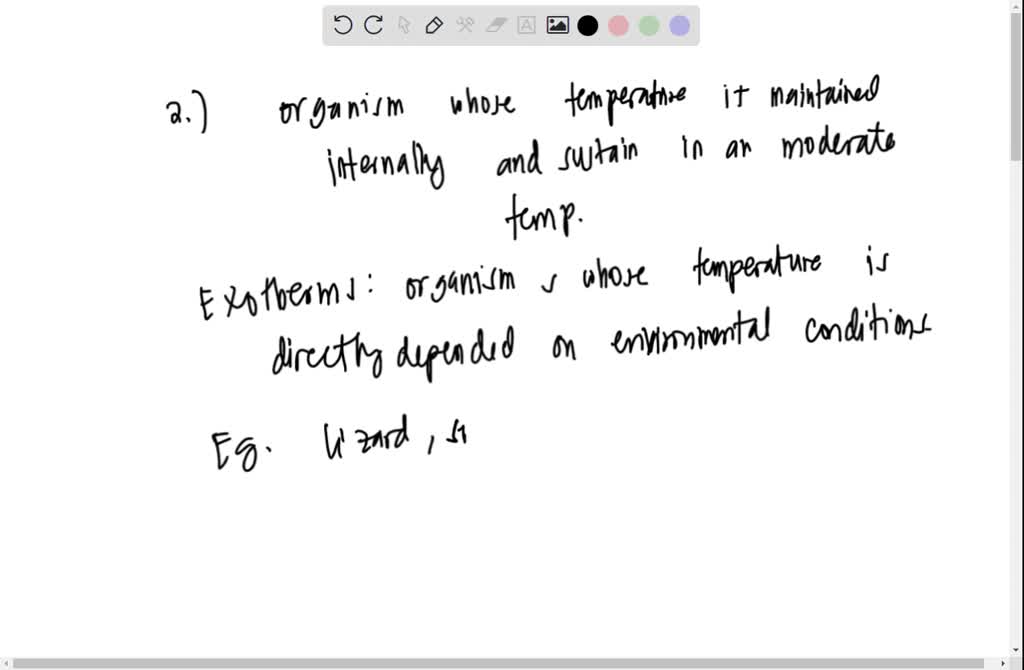 2.) organism whose temperature it maintained
internally and sustain in an moderate
temp.
Exotherms: organism s whose temperature is
directly depended on environmental conditions
Eg. lizard, sn